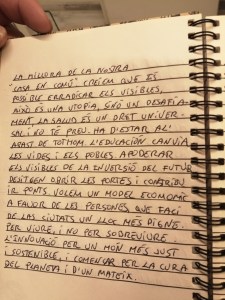 LA MILLORA DE LA NOSTRA
"CASA EN COMÚ" CREIEM QUE ÉS
POSSIBLE ERRADICAR ELS VISIBLES,
AIXÒ ÉS UNA UTOPIA, SINÓ UN DESAFIA-
MENT, LA SALUD ÉS UN DRET UNIVER-
SAL I NO TÉ PREU. HA D'ESTAR AL'
ABAST DE TOTHOM. L'EDUCACIÓN CANVIA
LES VIDES I ELS POBLES APODERAR
ELS VISIBLES DE LA INVERSIÓ DEL FUTUR
DESITGEM OBRIR LES PORTES I CONSTRUIR
PONTS. VOLEM UN MODEL ECONÒMIC
A FAVOR DE LES PERSONES QUE FACI
DE LAS CIUTATS UN LLOC MÉS DIGNE.
PER VIURE, I NO PER SOBREVIURE.
L'INNOVACIÓ PER UN MÓN MÉS JUST
I SOSTENIBLE, I COMENÇAR PER LA CURA
DEL PLANETA I D'UN MATEIX.